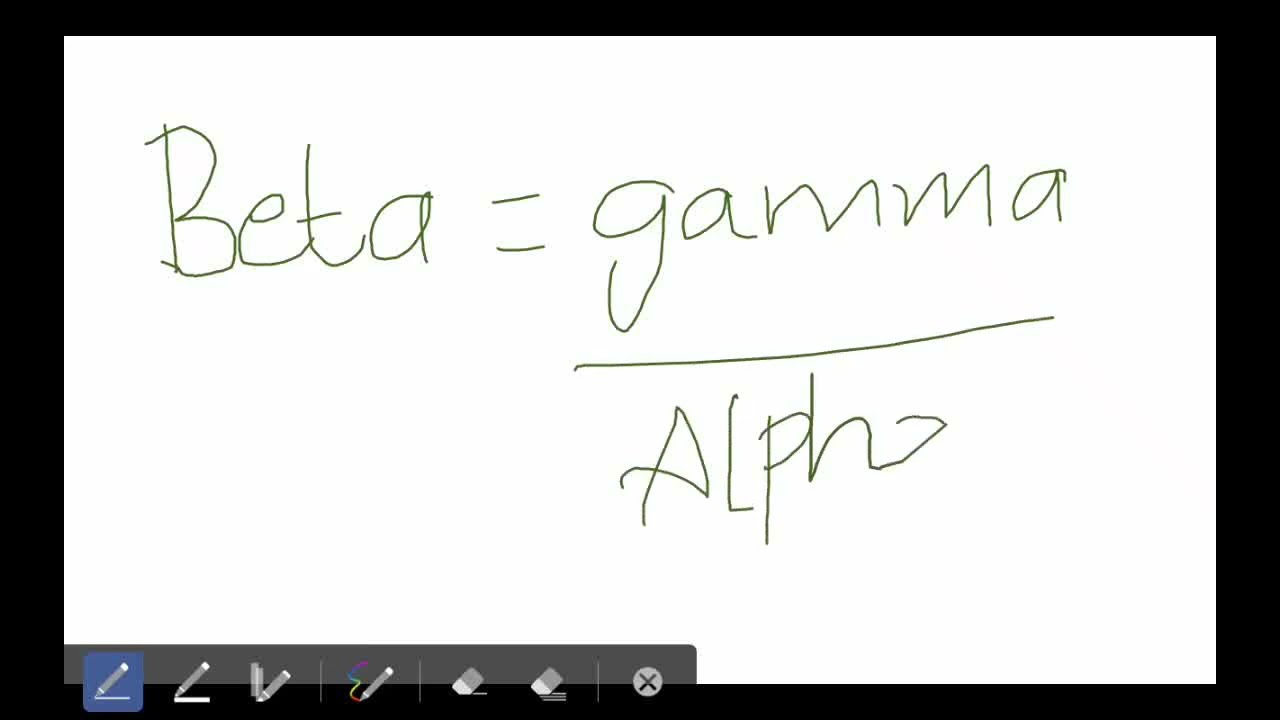 Beta = gamma
Alpha